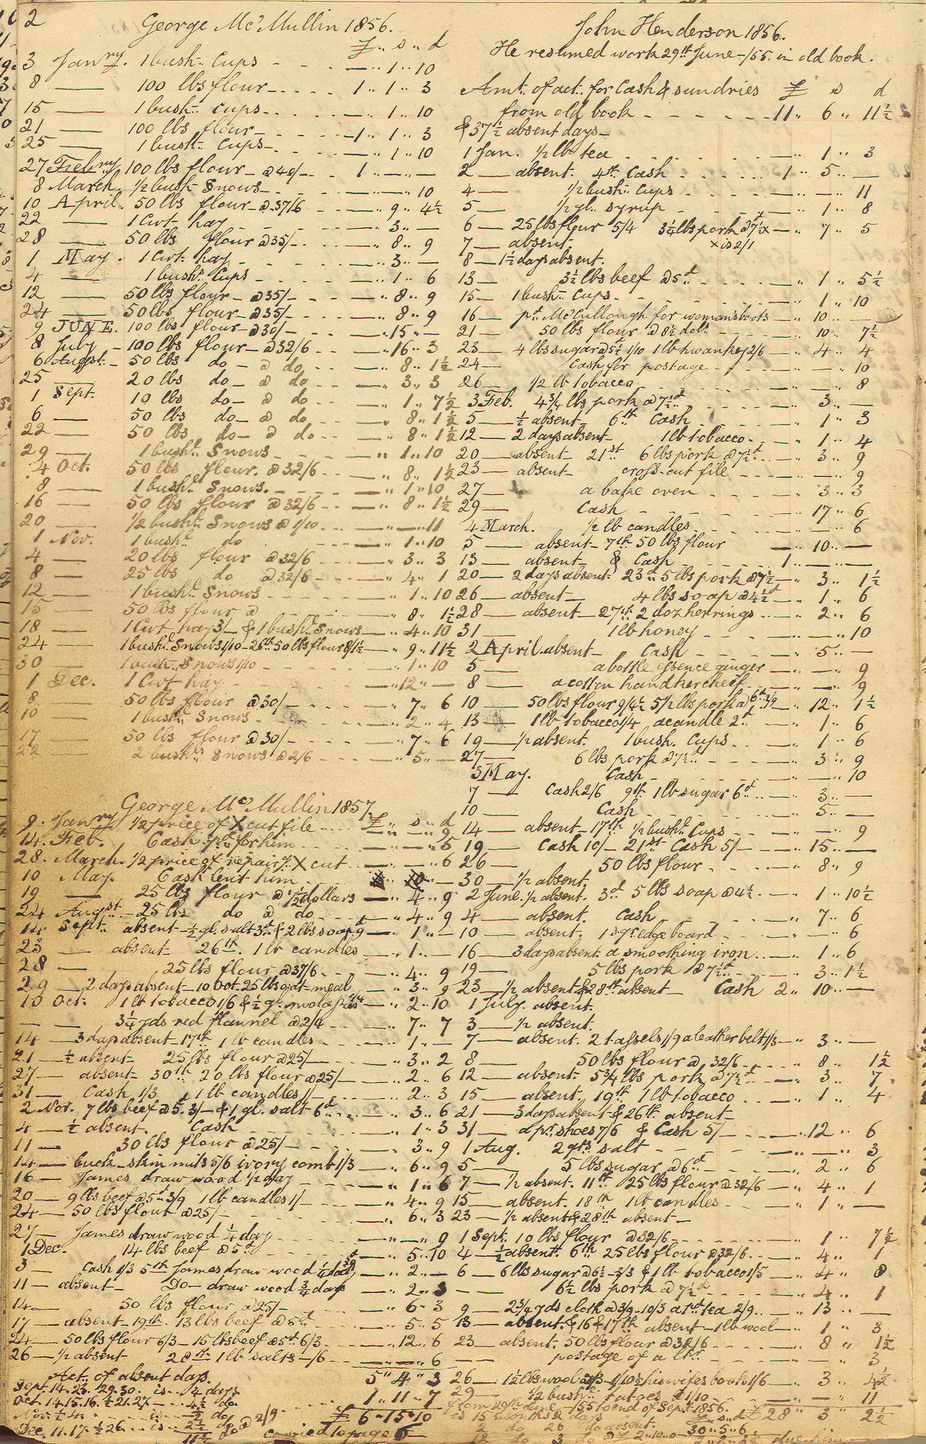 2
George McMullin 1856.
£ .. s .. d
3 Janry. 1 bush. Cups - - - - 1 .. 10
8 — 100 lbs flour - - - 1 .. 1 .. 3
15 — 1 bush. cups - - - - 1 .. 10
21 — 100 lbs flour - - - 1 .. 1 .. 3
25 — 1 bush. Cups - - - 1 .. 10
27 Febry. 100 lbs flour @ 40/- - - 1 .. — .. —
8 March. 1/2 bush. Snows - - - — .. 10
10 April. 50 lbs flour @ 37/6 - - - 9 .. 4½
22 — 1 Cwt hay - - - 3 .. —
28 — 50 lbs flour @ 35/- - - 8 .. 9
1 May. 1 Cwt. hay - - - 3 .. —
4 — 1 bush. Cups - - - 1 .. 6
12 — 50 lbs flour @ 35/- - - 8 .. 9
24 — 50 lbs flour @ 35/- - - 8 .. 9
9 JUNE. 100 lbs flour @ 30/- - - 15 .. —
8 July 100 lbs flour @ 32/6 - - 16 .. 3
6 Augst. 50 lbs do - @ do - - 8 .. 1½
25 — 20 lbs do - @ do - - 3 .. 3
1 Sept. 10 lbs do - @ do - - 1 .. 7½
6 — 50 lbs do - @ do - - 8 .. 1½
22 — 50 lbs do - @ do - - 8 .. 1½
29 — 1 bush. Snows - - - 1 .. 10
4 Oct. 50 lbs flour @ 32/6 - - 8 .. 1½
8 — 1 bush. Snows - - - 1 .. 10
16 — 50 lbs flour @ 32/6 - - 8 .. 1½
20 — 1/2 bush. Snows @ 1/10 - - — .. 11
1 Nov. 1 bush. do - - 1 .. 10
4 — 20 lbs flour @ 32/6 - - 3 .. 3
8 — 25 lbs do @ 32/6 - - 4 .. 1
12 — 1 bush. Snows - - - 1 .. 10
15 — 50 lbs flour @ - - 8 .. 1½
18 — 1 Cwt hay 3/- & 1 bush. Snows - 4 .. 10
24 — 1 bush. Snows 1/10 - 26th 50 lbs flour 8/1½ - 9 .. 11½
30 — 1 bush. Snows 1/10 - - 1 .. 10
1 Dec. 1 Cwt hay - - - 12 .. —
8 — 50 lbs flour @ 30/- - - 7 .. 6
10 — 1 bush. Snows - - - 2 .. 4
17 — 50 lbs flour @ 30/- - - 7 .. 6
22 — 2 bush. Snows @ 2/6 - - 5 .. —
George McMullin 1857
£ .. s .. d
9 Janry 1/2 price of X cut file - -
14 Feb. Cash pd. for him - - — .. 6
28 March 1/2 price of repairg. X cut - - — .. 6
10 May Cash lent him
19 — 25 lbs flour @ 7½ dollars - 4 .. 9
24 Augst 25 lbs do @ do - - 4 .. 9
14 Sept. absent - ½ gl. salt 3d & 2 lbs soap 9d - 1 .. —
23 — absent - 26th. 1 lb candles - 1 .. —
28 — 25 lbs flour @ 37/6 - - 4 .. 9
29 — 2 days absent - 10 Oct. 25 lbs oat meal - 3 .. 9
10 Oct. 1 lb tobacco 1/6 & ½ gl. molasses - 2 .. 10
— 3¼ yds red flannel @ 2/4 - - 7 .. 7
14 — 3 days absent - 17th 1 lb candles - 1 .. —
21 — ½ absent - 25 lbs flour @ 25/- - 3 .. 2
27 — absent 30th 20 lbs flour @ 25/- - 2 .. 6
31 — Cash 1/3 1 lb candles 1/- - - 2 .. 3
2 Nov. 7 lbs beef @ 5. 3/- & 1 gl. salt 6d - 3 .. 6
4 — ½ absent. Cash - - 1 .. 3
11 — 30 lbs flour @ 25/- - - 3 .. 9
14 — buck-skin mits 5/6 ivory comb 1/3 - 6 .. 9
16 — James draw wood ½ day - - 1 .. 6
20 — 9 lbs beef @ 5d 3/9 1 lb candles 1/- - 4 .. 9
24 — 50 lbs flour @ 25/- - - 6 .. 3
27 — James draw wood ¼ day - - — .. 9
1 Dec. 14 lbs beef @ 5d - - 5 .. 10
3 — Cash 1/3 5th James draw wood ¼ day - 2 .. —
11 — absent - Do - draw wood ¾ day - 2 .. 3
14 — 50 lbs flour @ 25/- - - 6 .. 3
17 — absent 19th. 13 lbs beef @ 5d - - 5 .. 5
24 — 50 lbs flour 6/3 - 15 lbs beef @ 5d 6/3 - 12 .. 6
26 — ½ absent 28th 1 lb salts -/6 - — .. 6
5 .. 4 .. 3
Act. of absent days.
Sept. 14. 23. 29. 30. is - 4 days
Oct. 14. 15. 16. ½ 21. 27 - 4½ do
1 .. 11 .. 7
£ 6 .. 15 .. 10
Dec. 11. 17. ½ 26 - is - 2½ do @ 2/9
carried to page 6
John Henderson 1856.
He resumed work 29th June -/55. in old book.
Amt. of act. for Cash & sundries £ s d
from old book - - - 11 .. 6 .. 11½
& 37½ absent days -
1 Jan. ½ lb tea - - - 1 .. 3
2 — absent 4th Cash - - 1 .. 5 .. —
4 — ½ bush. cups - - — .. 11
5 — ½ gl. syrup - - 1 .. 8
6 — 25 lbs flour 5/4 3¼ lbs pork @ 7½ - 7 .. 5
7 — absent. x is 2/1
8 — 1½ days absent.
13 — 3½ lbs beef @ 5d - - 1 .. 5½
15 — 1 bush. Cups - - 1 .. 10
16 — pr. McCullough for womans boots - 10 .. —
21 — 50 lbs flour @ 8½ dols - - 10 .. 7½
23 — 4 lbs sugar @ 5½ 1/10 1 lb twankey 2/6 - 4 .. 4
24 — Cash for postage - - — .. 10
26 — ½ lb tobacco - - — .. 8
3 Feb. 4¾ lbs pork @ 7½d - - 3 .. —
5 — ½ absent 6th Cash - - 1 .. 3
12 — 2 days absent - 1 lb tobacco - 1 .. 4
20 — absent 21st 6 lbs pork @ 7½d - 3 .. 9
23 — absent cross-cut file - — .. 9
27 — a bake oven - - 3 .. 3
29 — Cash - - 17 .. 6
4 March. ½ lb candles - - — .. 6
5 — absent - 7th 50 lbs flour - 10 .. —
13 — absent - & Cash - - 1 .. — .. —
20 — 2 days absent 23d 5 lbs pork @ 7½ - 3 .. 1½
26 — absent - 4 lbs soap @ 4½d - 1 .. 6
28 — absent 27th 2 doz herrings - 2 .. 6
31 — 1 lb honey - - — .. 10
2 April. absent - Cash - - 5 .. —
5 — a bottle essence ginger - — .. 9
8 — a cotton handkercheif - — .. 9
10 — 50 lbs flour 9/4½ 5½ lbs pork @ 6d 2/9 - 12 .. 1½
13 — 1 lb tobacco 1/4 a candle 2d - 1 .. 6
19 — ½ absent. 1 bush. Cups - 1 .. 6
27 — 6 lbs pork @ 7½d - - 3 .. 9
3 May. Cash - - — .. 10
7 — Cash 2/6 9th 1 lb sugar 6d - 3 .. —
10 — Cash - - 5 .. —
14 — absent - 17th ½ bush. Cups - — .. 9
19 — Cash 10/- 21st Cash 5/- - 15 .. —
26 — 50 lbs flour - - 8 .. 9
30 — ½ absent.
2 June. ½ absent 3d 5 lbs soap @ 4½ - 1 .. 10½
4 — absent. Cash - - 7 .. 6
10 — absent. 1 sqr. edge board - — .. 6
16 — 3 days absent a smoothing iron - 1 .. 6
19 — 5 lbs pork @ 7½d - - 3 .. 1½
23 — ½ absent & 28th absent - Cash 2 .. 10 .. —
1 July. absent.
3 — ½ absent.
7 — absent. 2 tassels 1/9 a leather belt 1/3 - 3 .. —
8 — 50 lbs flour @ 32/6 - 8 .. 1½
12 — absent 5¾ lbs pork @ 7½d - 3 .. 7
15 — absent 19th 1 lb tobacco - 1 .. 4
21 — 3 days absent & 26th absent -
31 — a pr. shoes 7/6 & Cash 5/- - 12 .. 6
1 Aug. 2 qts salt - - — .. 3
5 — 5 lbs sugar @ 6d - - 2 .. 6
7 — ½ absent. 11th 25 lbs flour @ 32/6 - 4 .. 1
15 — absent 18th 1 lb candles - 1 .. —
23 — ½ absent & 28th absent -
1 Sept. 10 lbs flour @ 32/6 - - 1 .. 7½
4 — ½ absent. 6th 25 lbs flour @ 32/6 - 4 .. 1
6 — 6 lbs sugar @ 6½ - 3/3 & 1 lb tobacco 1/5 - 4 .. 8
— 6½ lbs pork @ 7½d - - 4 .. 1
9 — 2¾ yds cloth @ 3/9 - 10/3 a pr. tea 2/9 - 13 .. —
13 — absent & 16 & 17th absent - 1 lb wool - 1 .. 3
23 — absent. 50 lbs flour @ 32/6 - 8 .. 1½
— postage of a ltr. - — .. 3
26 — 1½ lbs wool - 1/10½ his wifes book 1/6 - 3 .. 4½
29 — ½ bush. Potatoes @ 1/10 - — .. 11
From 29th June -/55 to end of Sept. 1856. £28 .. 3 .. 2½
is 15 months & 2 days